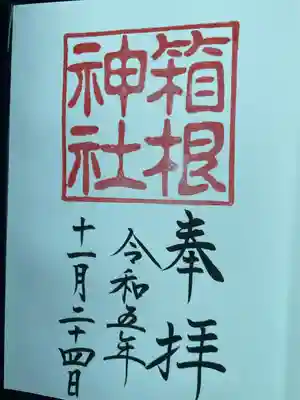 箱根
神社
奉拝
令和五年
十一月二十四日